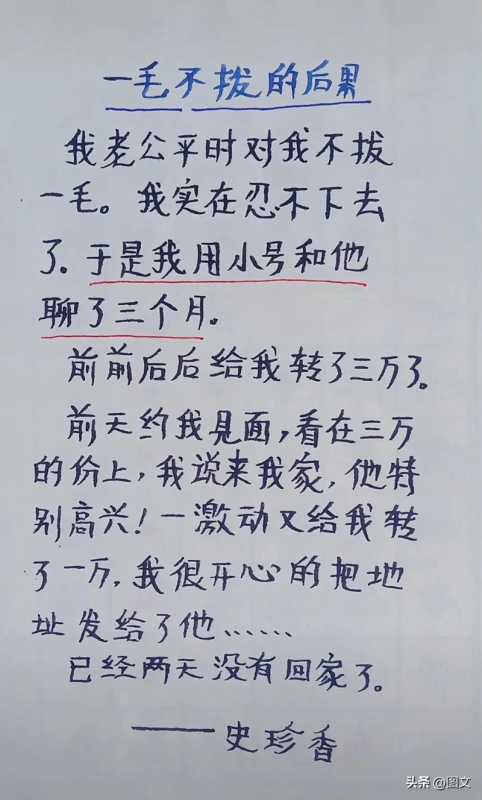 一毛不拨的后果
我老公平时对我不拨
一毛。我实在忍不下去
了。于是我用小号和他
聊了三个月。
前前后后给我转了三万了。
前天约我见面，看在三万
的份上，我说来我家，他特
别高兴！一激动又给我转
了一万，我很开心的把地
址发给了他……
已经两天没有回家了。
——史珍香
头条 @图文